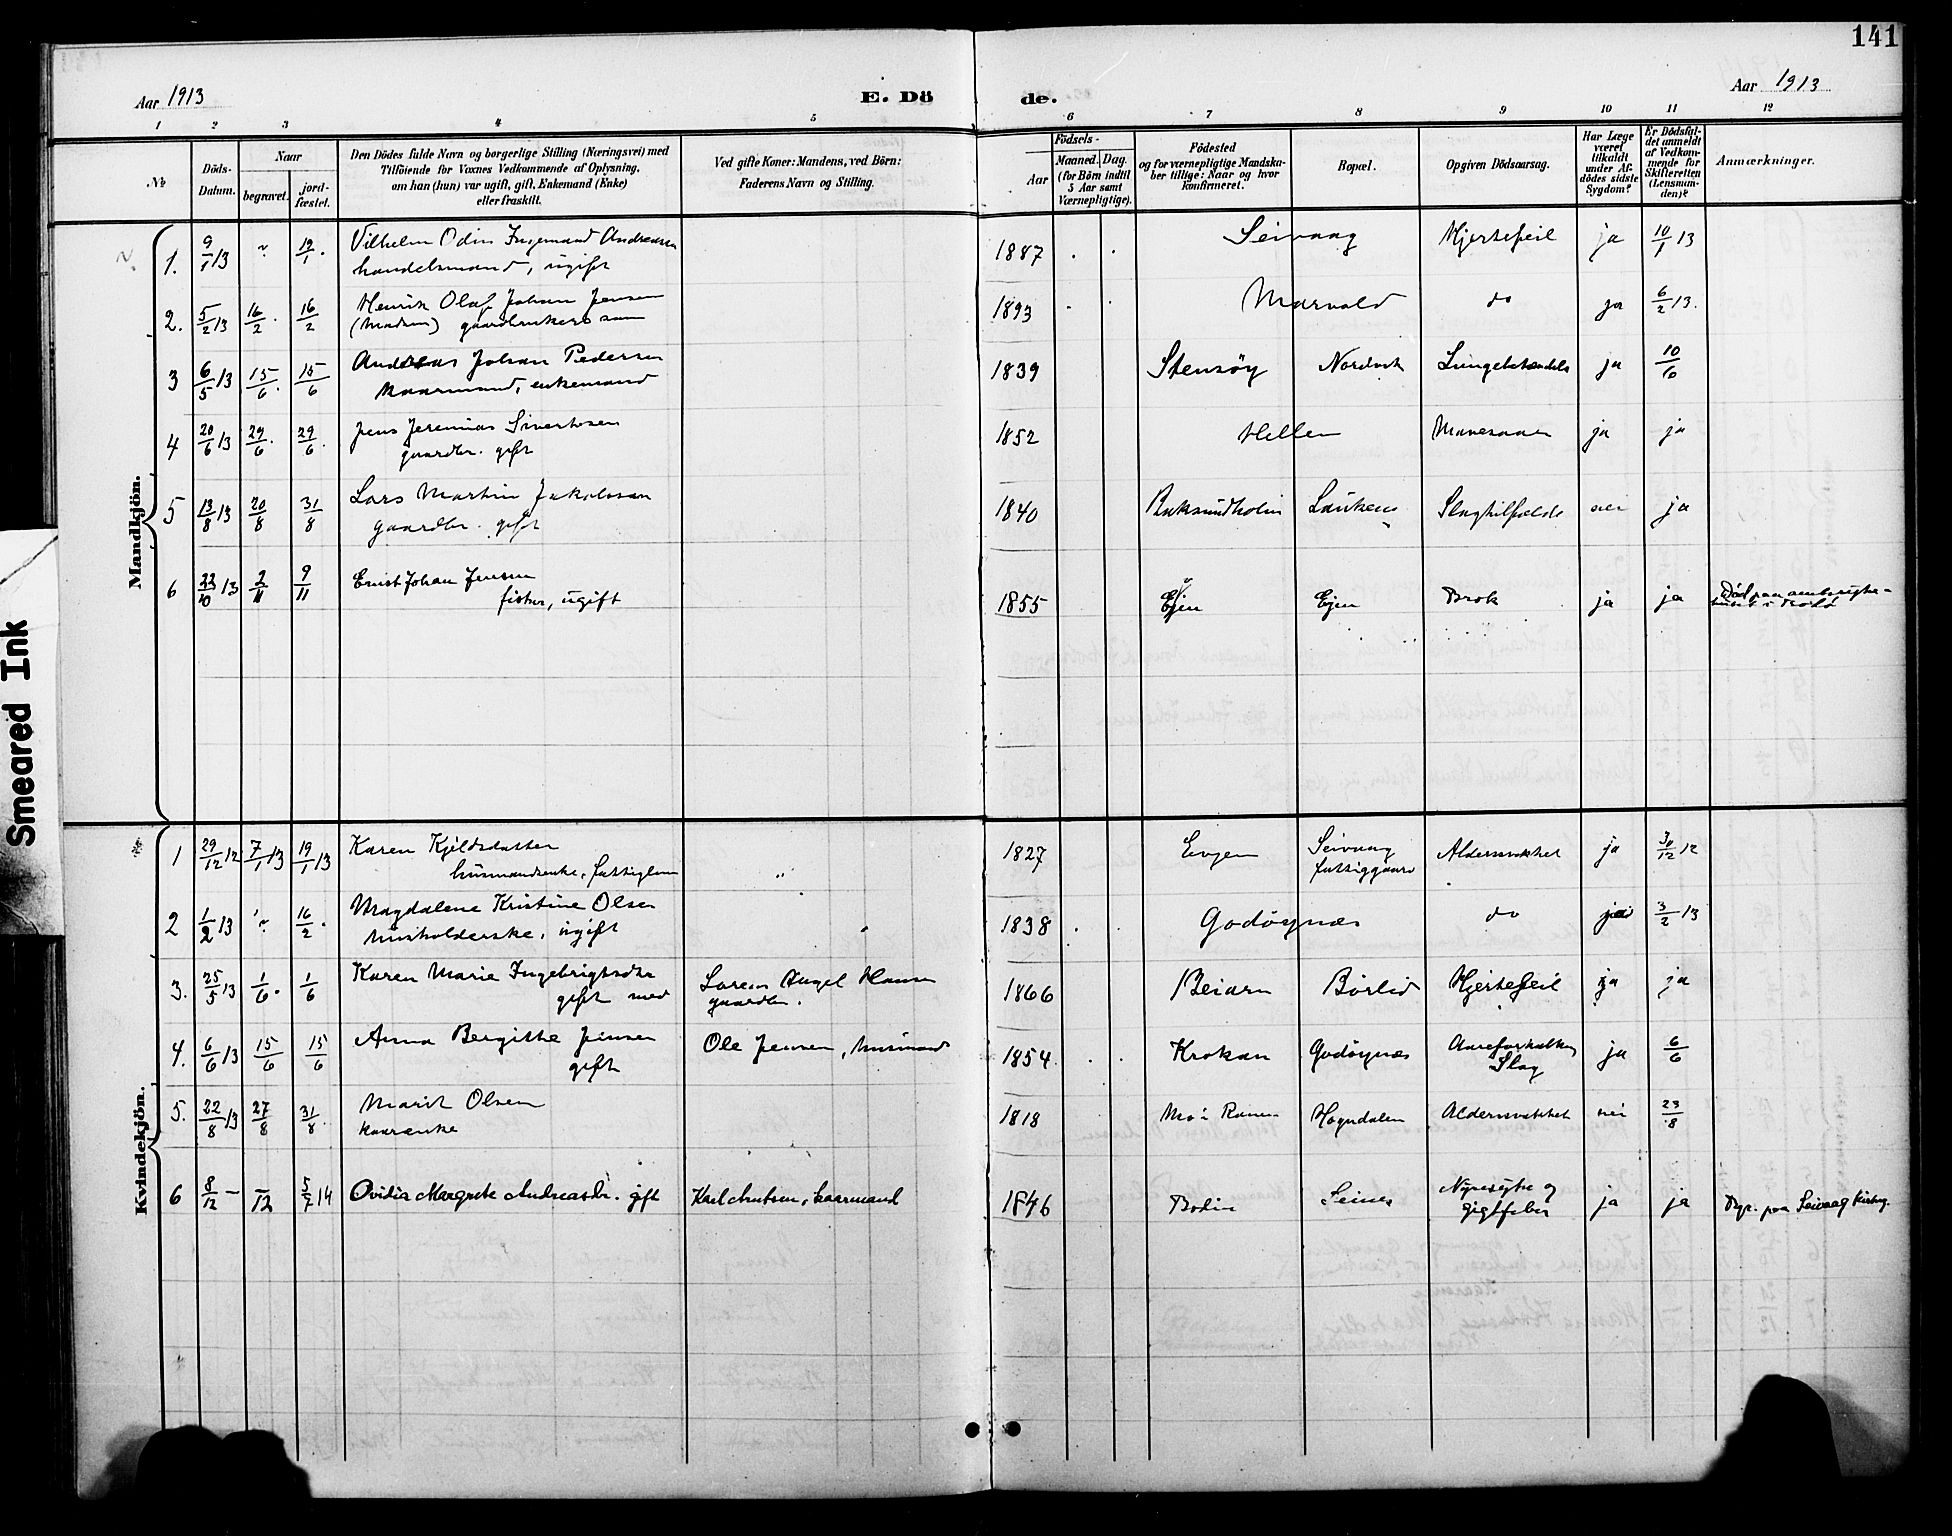 141
Aar 1913
E. Dö
de.
Aar 1913
1 2 3 4 5 6 7 8 9 10 11 12
№
Döds-
Datum.
Naar
begravet.
jord-
fæstet.
Den Dödes fulde Navn og borgerlige Stilling (Næringsvei) med
Tilföiende for Voxnes Vedkommende af Oplysning,
om han (hun) var ugift, gift, Enkemand (Enke)
eller fraskilt.
Ved gifte Koner: Mandens, ved Börn:
Faderens Navn og Stilling.
Födsels-
Aar
Maaned. Dag.
(for Börn indtil
5 Aar samt
Værnepligtige).
Födested
og for værnepligtige Mandska-
ber tillige: Naar og hvor
konfirmeret.
Bopæl.
Opgiven Dödsaarsag.
Har Læge
været
tilkaldt
under Af-
dödes sidste
Sygdom?
Er Dödsfal-
det anmeldt
af Vedkom-
mende for
Skifteretten
(Lensman-
den)?
Anmærkninger.
Mandkjön.
1. 9/1 13 19/1. Vilhelm Odin Ingemand Andreassen
handelsmand, ugift
1887 Seivaag Hjertefeil ja 10/1 13
2. 5/2 13 16/2. 16/2 Henrik Olaf Johan Jensen
(Madsen) gaardbrukers søn
1893 Marvold do ja 6/2 13.
3 6/5 13 15/6. 15/6 Andreas Johan Pedersen
kaarmand, enkemand
1839 Stensøy Nordvik Lungebetændels ja 10/6
4 20/6 13 29/6. 29/6. Jens Jeremias Sivertsen
gaardbr. gift
1852 Hellen ja ja
5 13/8 13 20/8 31/8 Lars Martin Jakobsen
gaardbr. gift
1840 Slagtilfælde nei ja
6 22/10 13 2/11 9/11 Ernst Johan Jensen
fisker, ugift
1855 Ejen Ejen Brok ja ja Død paa
Kvindekjön.
1 29/12 12 7/1 13 19/1 13 Karen Kjeldsdatter
husmandsenke, fattiglem
"
1827 Evjen Seivaag
fattiggaard
Aldersvakhet ja 30/12 12
2 1/2 13 16/2. Magdalene Kristine Olsen
husholderske, ugift
1838 Godøynæs do 3/2 13
3. 25/5 13 1/6. 1/6 Karen Marie Ingebrigtsdtr
gift med
Lorens Angel Hansen
gaardbr.
1866 Beiarn Børlid Hjertefeil ja ja
4. 6/6 13 15/6 15/6 Anna Bergitte Jensen
gift
Ole Jensen, husmand
1854 Krokan Godøynæs Aareforkalkn
Slag
ja 6/6
5. 22/8 13 27/8 31/8. Marit Olsen
kaarenke
1818 Mo i Ranen Høgndalen Aldersvakhet nei 23/8
6 8/12 – –/12 5/7 14 Ovidia Margrete Andreasdr. gift
Karl Knutsen, kaarmand
1846 Bodin Seines Nyresyke og
gigtfeber
ja ja Begr. paa Seivaag kirkeg.
Smeared Ink